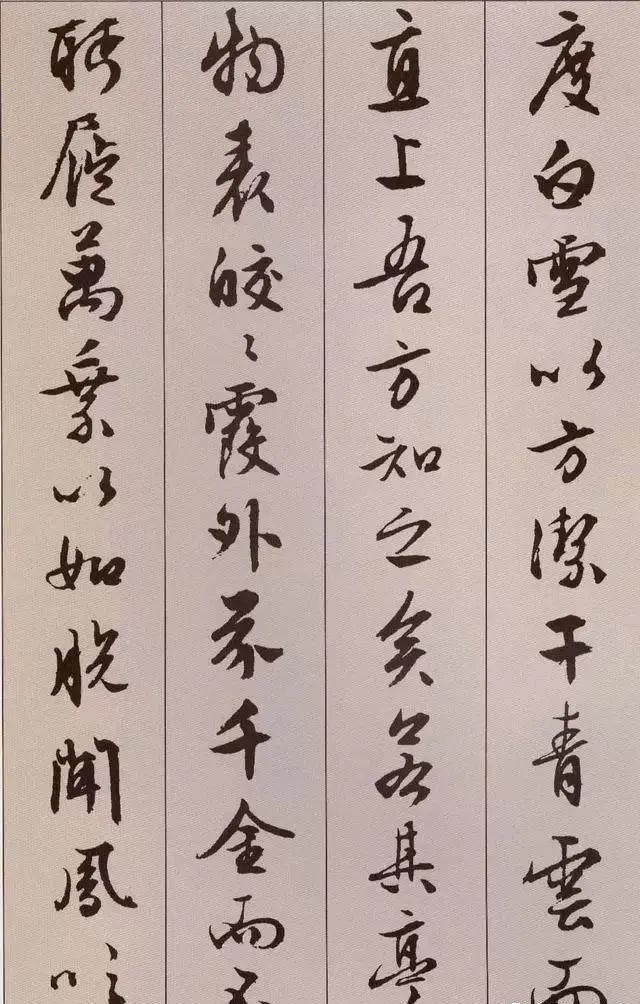 度白雪以方潔干青雲而
直上吾方知之矣若其亭
物表皎〻霞外芥千金而不
眄屣萬乘以如脫聞鳳吹